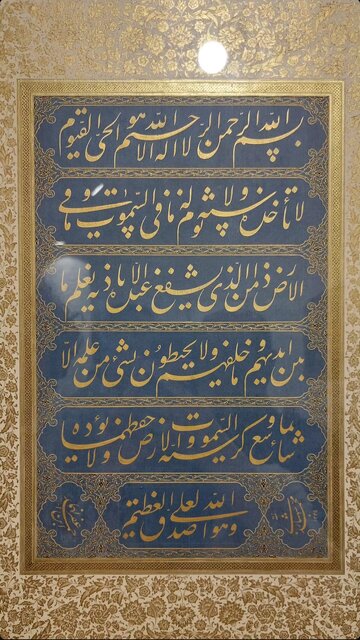 بسم الله الرحمن الرحیم الله لا اله الا هو الحی القیوم
لا تأخذه سنة ولا نوم له ما فی السموات وما فی
الارض من ذا الذی یشفع عنده الا باذنه یعلم ما
بین ایدیهم وما خلفهم ولا یحیطون بشئ من علمه الا
بما شاء وسع کرسیه السموات والارض ولا یؤده حفظهما
وهو العلی العظیم صدق الله